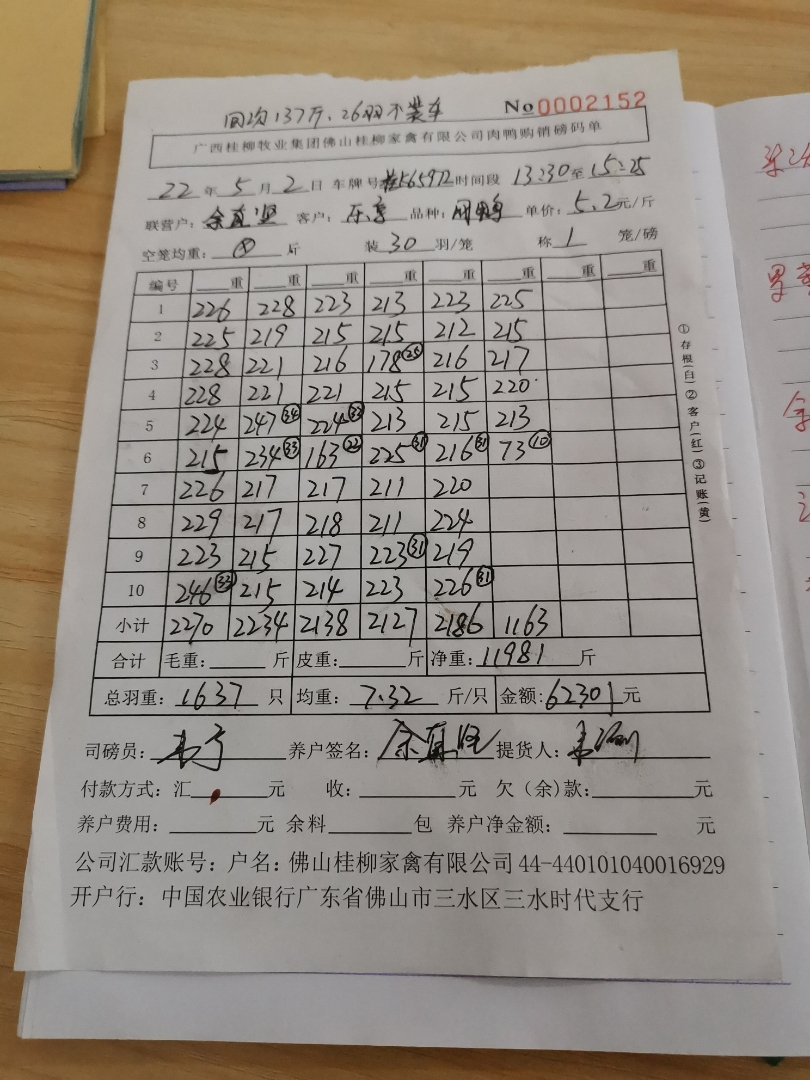 回沟137斤、26羽不装车 No 0002152
广西桂柳牧业集团佛山桂柳家禽有限公司肉鸭购销磅码单
22年5月2日 车牌号 565972 时间段 13:30至15:25
联营户: 余真坚 客户: 品种: 鸭 单价: 5.2元/斤
空笼均重: 斤 装30羽/笼 称1笼/磅
编号 重 重 重 重 重 重 重 重
1 226 228 223 213 223 225
2 225 219 215 215 212 215
3 228 221 216 178㉕ 216 217
4 228 221 221 215 215 220
5 224 247㉞ 224㉝ 213 215 213
6 215 234㉝ 163㉒ 225㉛ 216㉛ 73⑩
7 226 217 217 211 220
8 229 217 218 211 224
9 223 215 227 223㉛ 219
10 246㉝ 215 214 223 226㉛
小计 2270 2234 2138 2127 2186 1163
合计 毛重: 斤 皮重: 斤 净重: 11981 斤
总羽重: 1637 只 均重: 7.32 斤/只 金额: 62301元
司磅员: 养户签名: 余真坚 提货人:
付款方式: 汇 元 收: 元 欠(余)款: 元
养户费用: 元 余料 包 养户净金额: 元
公司汇款账号: 户名: 佛山桂柳家禽有限公司 44-440101040016929
开户行: 中国农业银行广东省佛山市三水区三水时代支行
①存根(白)②客户(红)③记账(黄)